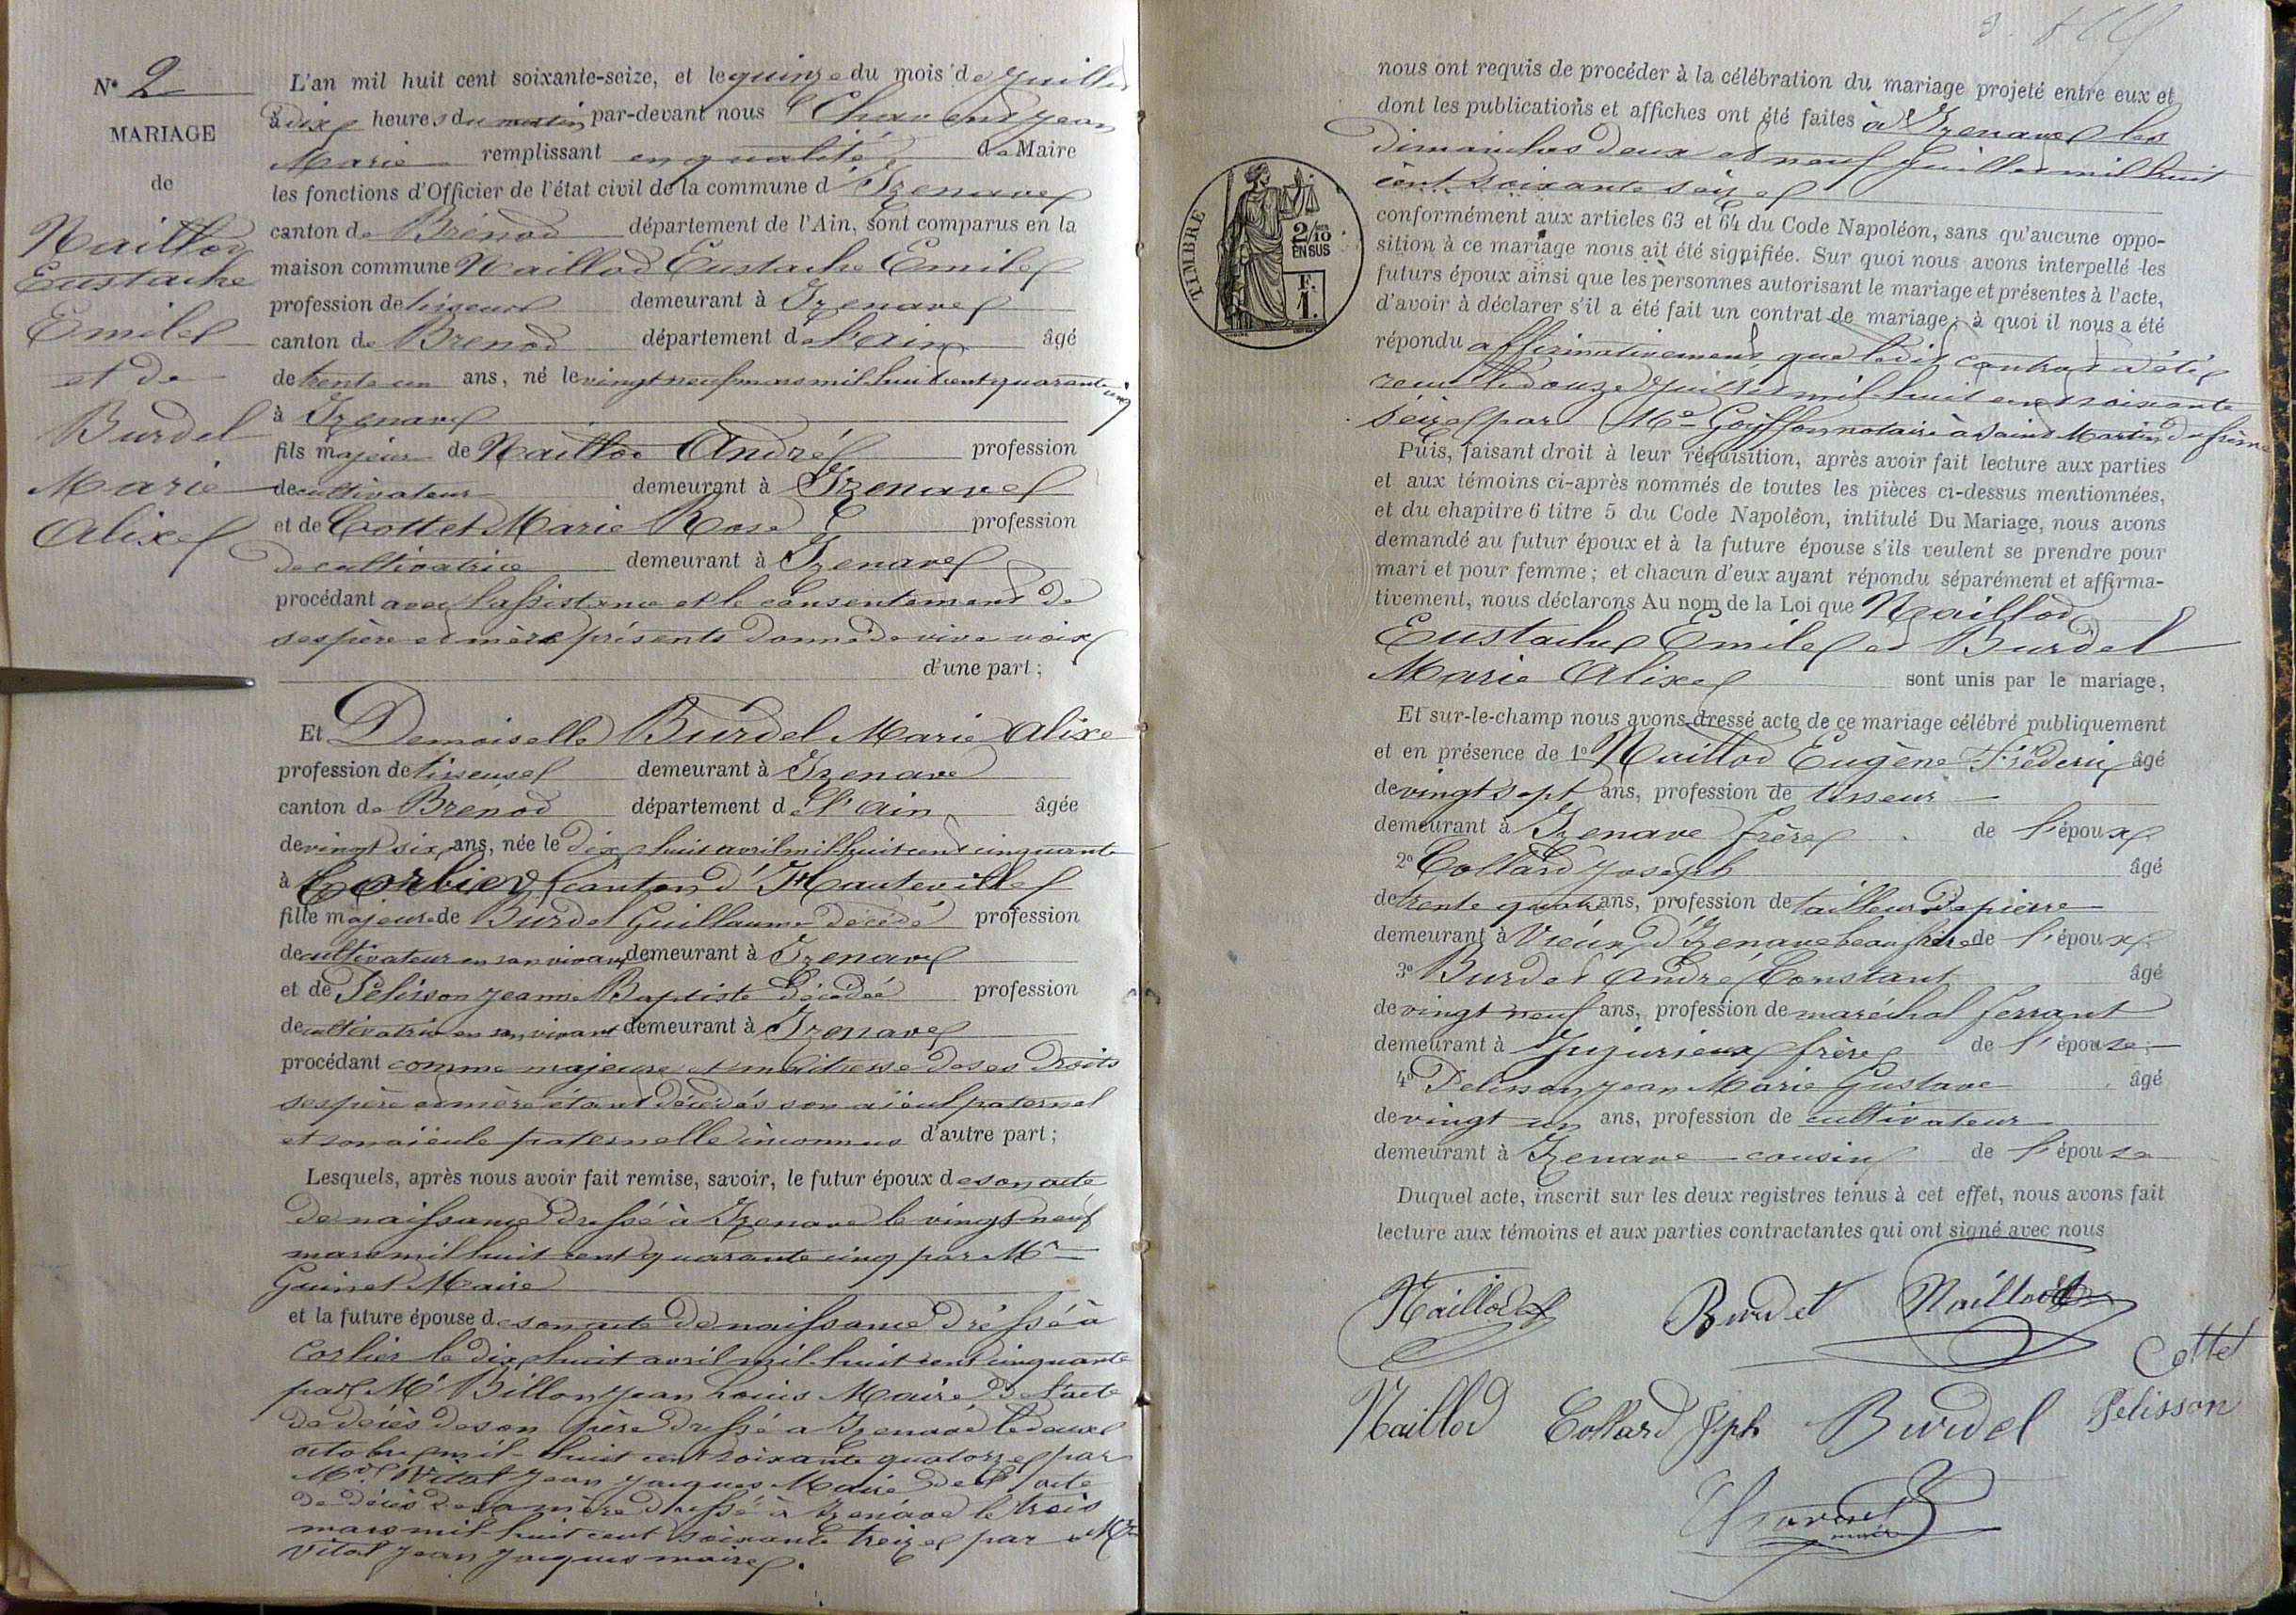 N° 2
MARIAGE
de
Naillod
Eustache
Emile
et de
Burdel
Marie
Alixe
L'an mil huit cent soixante-seize, et le quinze du mois de juillet
à dix heures du matin par-devant nous Chavent Jean
Marie remplissant en qualité de Maire
les fonctions d'Officier de l'état civil de la commune d'Izenave
canton de Brénod département de l'Ain, sont comparus en la
maison commune Naillod Eustache Emile
profession de tisseur demeurant à Izenave
canton de Brénod département de l'Ain âgé
de trente un ans, né le vingt neuf mars mil huit cent quarante cinq
à Izenave
fils majeur de Naillod André profession
de cultivateur demeurant à Izenave
et de Cottet Marie Rose profession
de cultivatrice demeurant à Izenave
procédant avec l'assistance et le consentement de
ses père et mère présents donné de vive voix
d'une part ;
Et Demoiselle Burdel Marie Alixe
profession de tisseuse demeurant à Izenave
canton de Brénod département de l'Ain âgée
de vingt six ans, née le dix huit avril mil huit cent cinquante
à Corlier canton d'Hauteville
fille majeure de Burdel Guillaume décédé profession
de cultivateur en son vivant demeurant à Izenave
et de Pelisson Jeanne Baptiste décédée profession
de cultivatrice en son vivant demeurant à Izenave
procédant comme majeure et maîtresse de ses droits
ses père et mère étant décédés son aïeul paternel
et son aïeule paternelle inconnus d'autre part ;
Lesquels, après nous avoir fait remise, savoir, le futur époux de son acte
de naissance dressé à Izenave le vingt neuf
mars mil huit cent quarante cinq par Mr
Guinet Maire
et la future épouse de son acte de naissance dréssé à
Corlier le dix huit avril mil huit cent cinquante
par Mr Billon Jean Louis Maire de l'acte
de décès de son père dressé a Izenave le deux
octobre mil huit cent soixante quatorze par
Mr Vital Jean Jacques Maire de l'acte
de décès de sa mère dressé à Izenave le trois
mars mil huit cent soixante treize par Mr
Vital Jean Jacques maire.
nous ont requis de procéder à la célébration du mariage projeté entre eux et
dont les publications et affiches ont été faites à Izenave les
dimanches deux et neuf juillet mil huit
cent soixante seize
TIMBRE
2/10
EN SUS
F.
1.
conformément aux articles 63 et 64 du Code Napoléon, sans qu'aucune oppo-
sition à ce mariage nous ait été signifiée. Sur quoi nous avons interpellé les
futurs époux ainsi que les personnes autorisant le mariage et présentes à l'acte,
d'avoir à déclarer s'il a été fait un contrat de mariage ; à quoi il nous a été
répondu affirmativement que ledit contrat a été
reçu le douze juillet mil huit cent soixante
seize par Me Goiffon notaire à Saint Martin du frêne
Puis, faisant droit à leur réquisition, après avoir fait lecture aux parties
et aux témoins ci-après nommés de toutes les pièces ci-dessus mentionnées,
et du chapitre 6 titre 5 du Code Napoléon, intitulé Du Mariage, nous avons
demandé au futur époux et à la future épouse s'ils veulent se prendre pour
mari et pour femme ; et chacun d'eux ayant répondu séparément et affirma-
tivement, nous déclarons Au nom de la Loi que Naillod
Eustache Emile et Burdel
Marie Alixe sont unis par le mariage,
Et sur-le-champ nous avons dressé acte de ce mariage célébré publiquement
et en présence de 1° Naillod Eugène Fréderic âgé
de vingt sept ans, profession de tisseur
demeurant à Izenave frère de l'époux
2° Collard Joseph âgé
de trente quatre ans, profession de tailleur de pierre
demeurant à Vieux d'Izenave beau frère de l'époux
3° Burdel André Constant âgé
de vingt neuf ans, profession de maréchal ferrant
demeurant à Jujurieux frère de l'épouse
4° Pelisson Jean Marie Gustave âgé
de vingt un ans, profession de cultivateur
demeurant à Izenave cousin de l'épouse
Duquel acte, inscrit sur les deux registres tenus à cet effet, nous avons fait
lecture aux témoins et aux parties contractantes qui ont signé avec nous
Naillod Burdel Naillod
Cottet
Naillod Collard Jph Burdel Pelisson
Chavent
maire